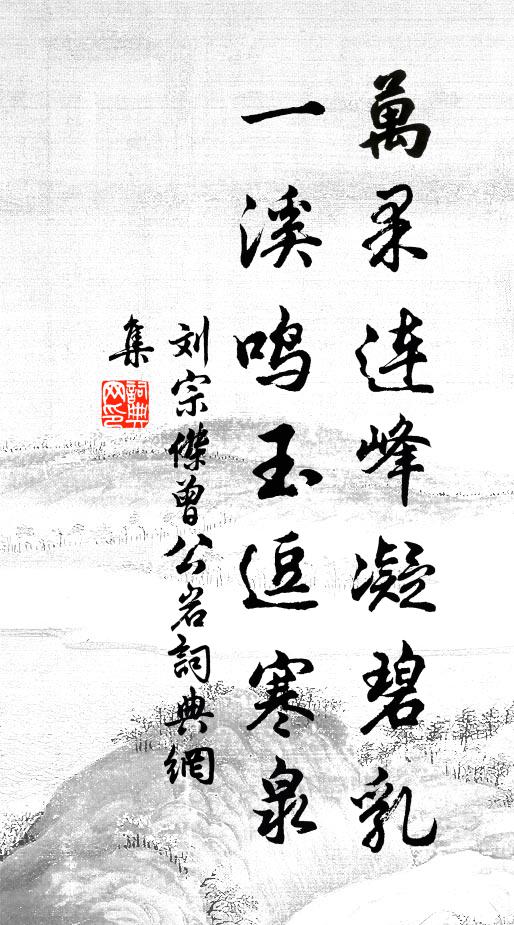 萬朵連峰凝碧乳
一溪鳴玉逗寒泉
刘宗傑曾公岩詞典網
集
詞典網印